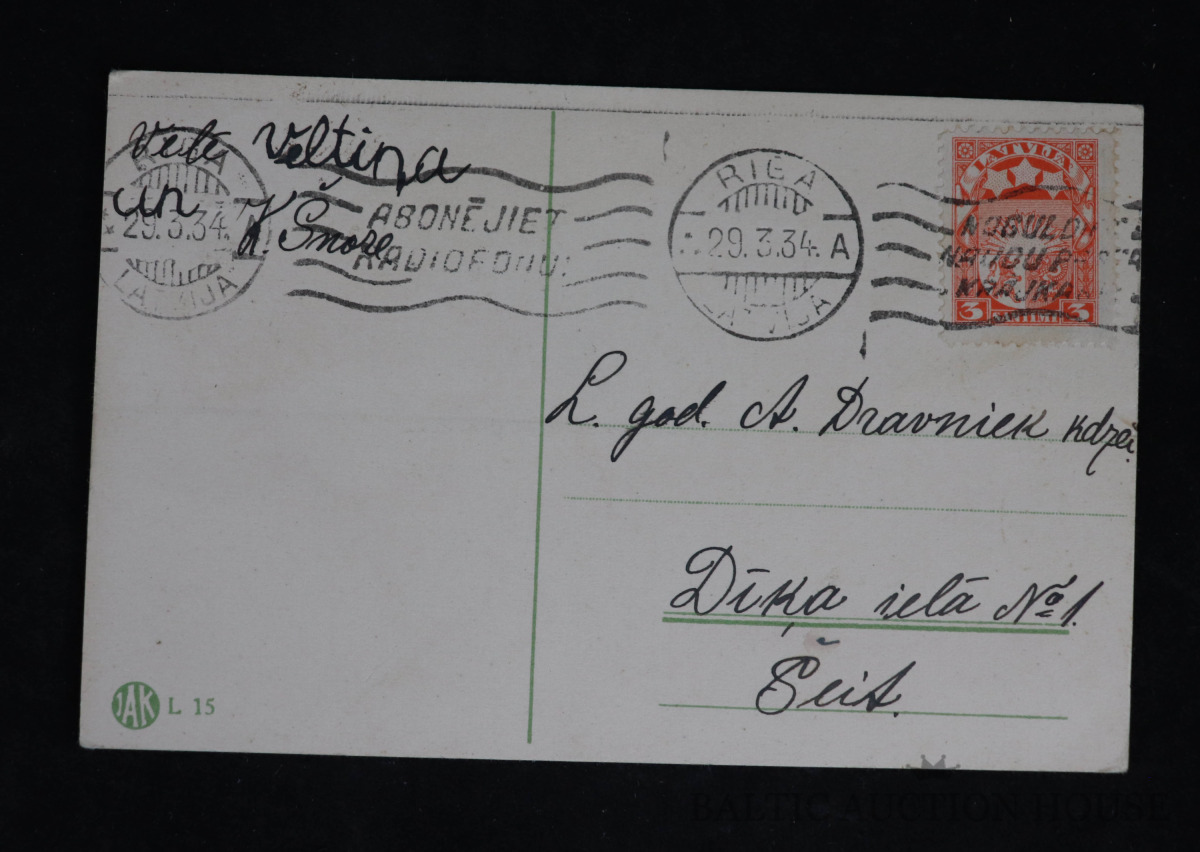 Veltiņa
un K. Šnore
RIGA
29.3.34.
LATVIJA
ABONĒJIET
RADIOFONU!
RIGA
29.3.34. A
LATVIJA
LATVIJA
NOGULD
NAUDU
KRĀJKA
3 3
L. god. A. Dravniek kdzei.
Dīķa ielā № 1.
Šeit.
JAK L 15
BALTIC AUCTION HOUSE